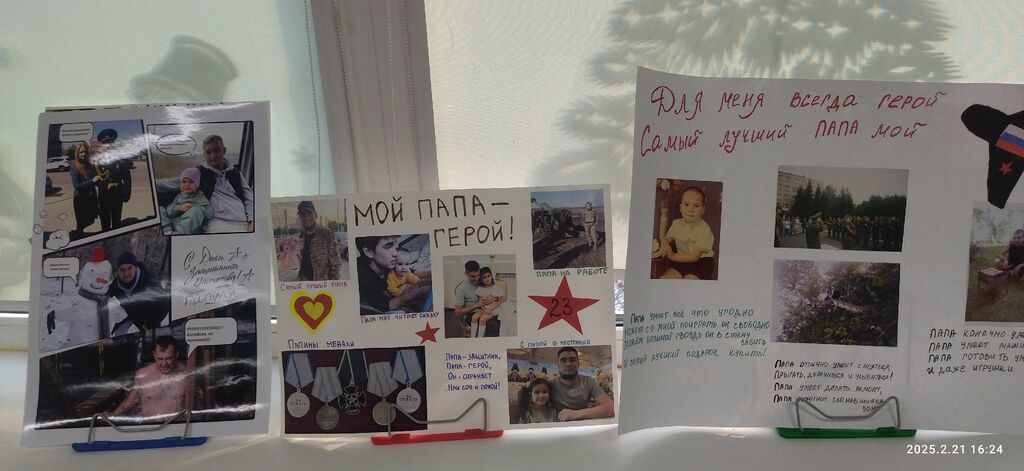 С Днём
Защитника
Отечества!
МОЙ ПАПА –
ГЕРОЙ!
САМЫЙ ЛУЧШИЙ ПАПА
ПАПА МНЕ ЧИТАЕТ СКАЗКУ
ПАПА НА РАБОТЕ
23
ПАПИНЫ МЕДАЛИ
С ПАПОЙ В РЕСТОРАНЕ
ПАПА-ЗАЩИТНИК,
ПАПА-ГЕРОЙ,
ОН-ОХРАНЯЕТ
НАШ СОН И ПОКОЙ!
ДЛЯ МЕНЯ ВСЕГДА ГЕРОЙ
САМЫЙ ЛУЧШИЙ ПАПА МОЙ
ПАПА МОЖЕТ ВСЁ ЧТО УГОДНО
МОЖЕТ СО МНОЙ ПОИГРАТЬ ОН СВОБОДНО
МОЖЕТ БОЛЬШОЙ ГВОЗДЬ ОН В СТЕНУ
ЗАБИТЬ
И САМЫЙ ЛУЧШИЙ ПОДАРОК КУПИТЬ!
ПАПА ОТЛИЧНО УМЕЕТ СМЕЯТЬСЯ,
ПРЫГАТЬ, ДУРАЧИТЬСЯ И УЛЫБАТЬСЯ!
ПАПА УМЕЕТ ДЕЛАТЬ РЕМОНТ,
ПАПА ПОЧИНИТ СЛОМАВШИЙСЯ
ЗОНТ
ПАПА КОНЕЧНО
ПАПА ЧИНИТ
ПАПА ГОТОВИТЬ
И ДАЖЕ ИГРУШКИ
2025.2.21 16:24